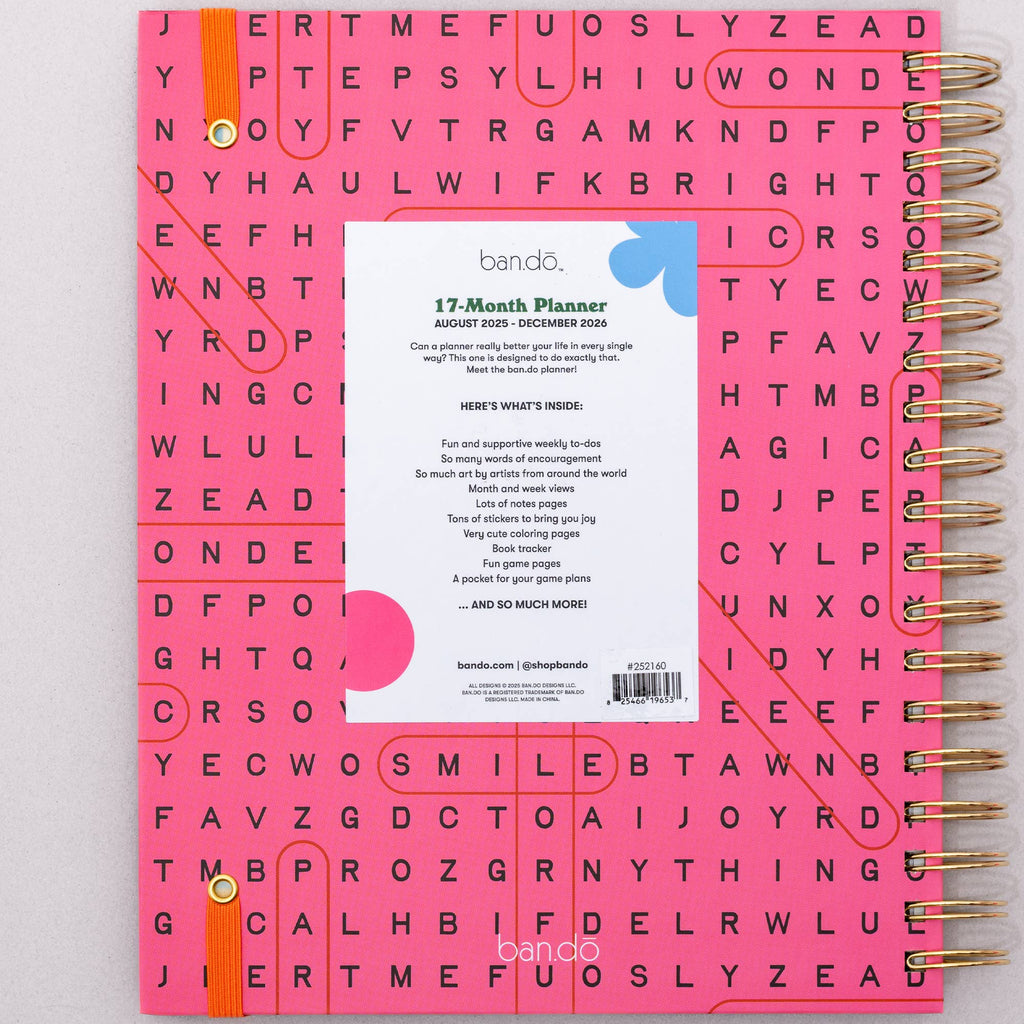 J E R T M E F U O S L Y Z E A D
Y P T E P S Y L H I U W O N D E
N X O Y F V T R G A M K N D F P O
D Y H A U L W I F K B R I G H T Q
E E F H I C R S O
W N B T T Y E C W
Y R D P P F A V Z
I N G C H T M B P
W L U L A G I C A
Z E A D D J P E R
O N D E C Y L P T
D F P O U N X O Y
G H T Q I D Y H
C R S O E E E F
Y E C W O S M I L E B T A W N B
F A V Z G D C T O A I J O Y R D
T M B P R O Z G R N Y T H I N G
G C A L H B I F D E L R W L U L
J E R T M E F U O S L Y Z E A D
ban.dō™
17-Month Planner
AUGUST 2025 - DECEMBER 2026
Can a planner really better your life in every single
way? This one is designed to do exactly that.
Meet the ban.do planner!
HERE'S WHAT'S INSIDE:
Fun and supportive weekly to-dos
So many words of encouragement
So much art by artists from around the world
Month and week views
Lots of notes pages
Tons of stickers to bring you joy
Very cute coloring pages
Book tracker
Fun game pages
A pocket for your game plans
... AND SO MUCH MORE!
bando.com | @shopbando
ALL DESIGNS © 2025 BAN.DO DESIGNS LLC.
BAN.DO IS A REGISTERED TRADEMARK OF BAN.DO
DESIGNS LLC. MADE IN CHINA.
#252160
8 25466 19653 7
ban.dō